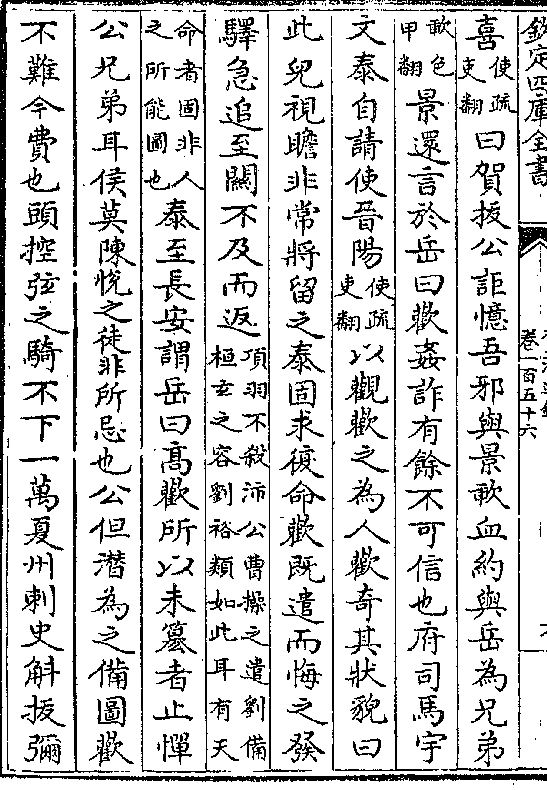 欽定四庫全書
卷一百五十六
喜使疏吏翻曰賀拔公詎憶吾邪與景歃血約與岳為兄弟
歃色甲翻景還言於岳曰歡姦詐有餘不可信也府司馬宇
文泰自請使晉陽使疏吏翻以觀歡之為人歡奇其狀貌曰
此兒視瞻非常將留之泰固求復命歡既遣而悔之發
驛急追至關不及而返項羽不殺沛公曹操之遣劉備桓玄之容劉裕類如此耳有天
命者固非人之所能圖也泰至長安謂岳曰高歡所以未簒者止憚
公兄弟耳侯莫陳悅之徒非所忌也公但潛為之備圖歡
不難今費也頭控弦之騎不下一萬夏州刺史斛拔彌